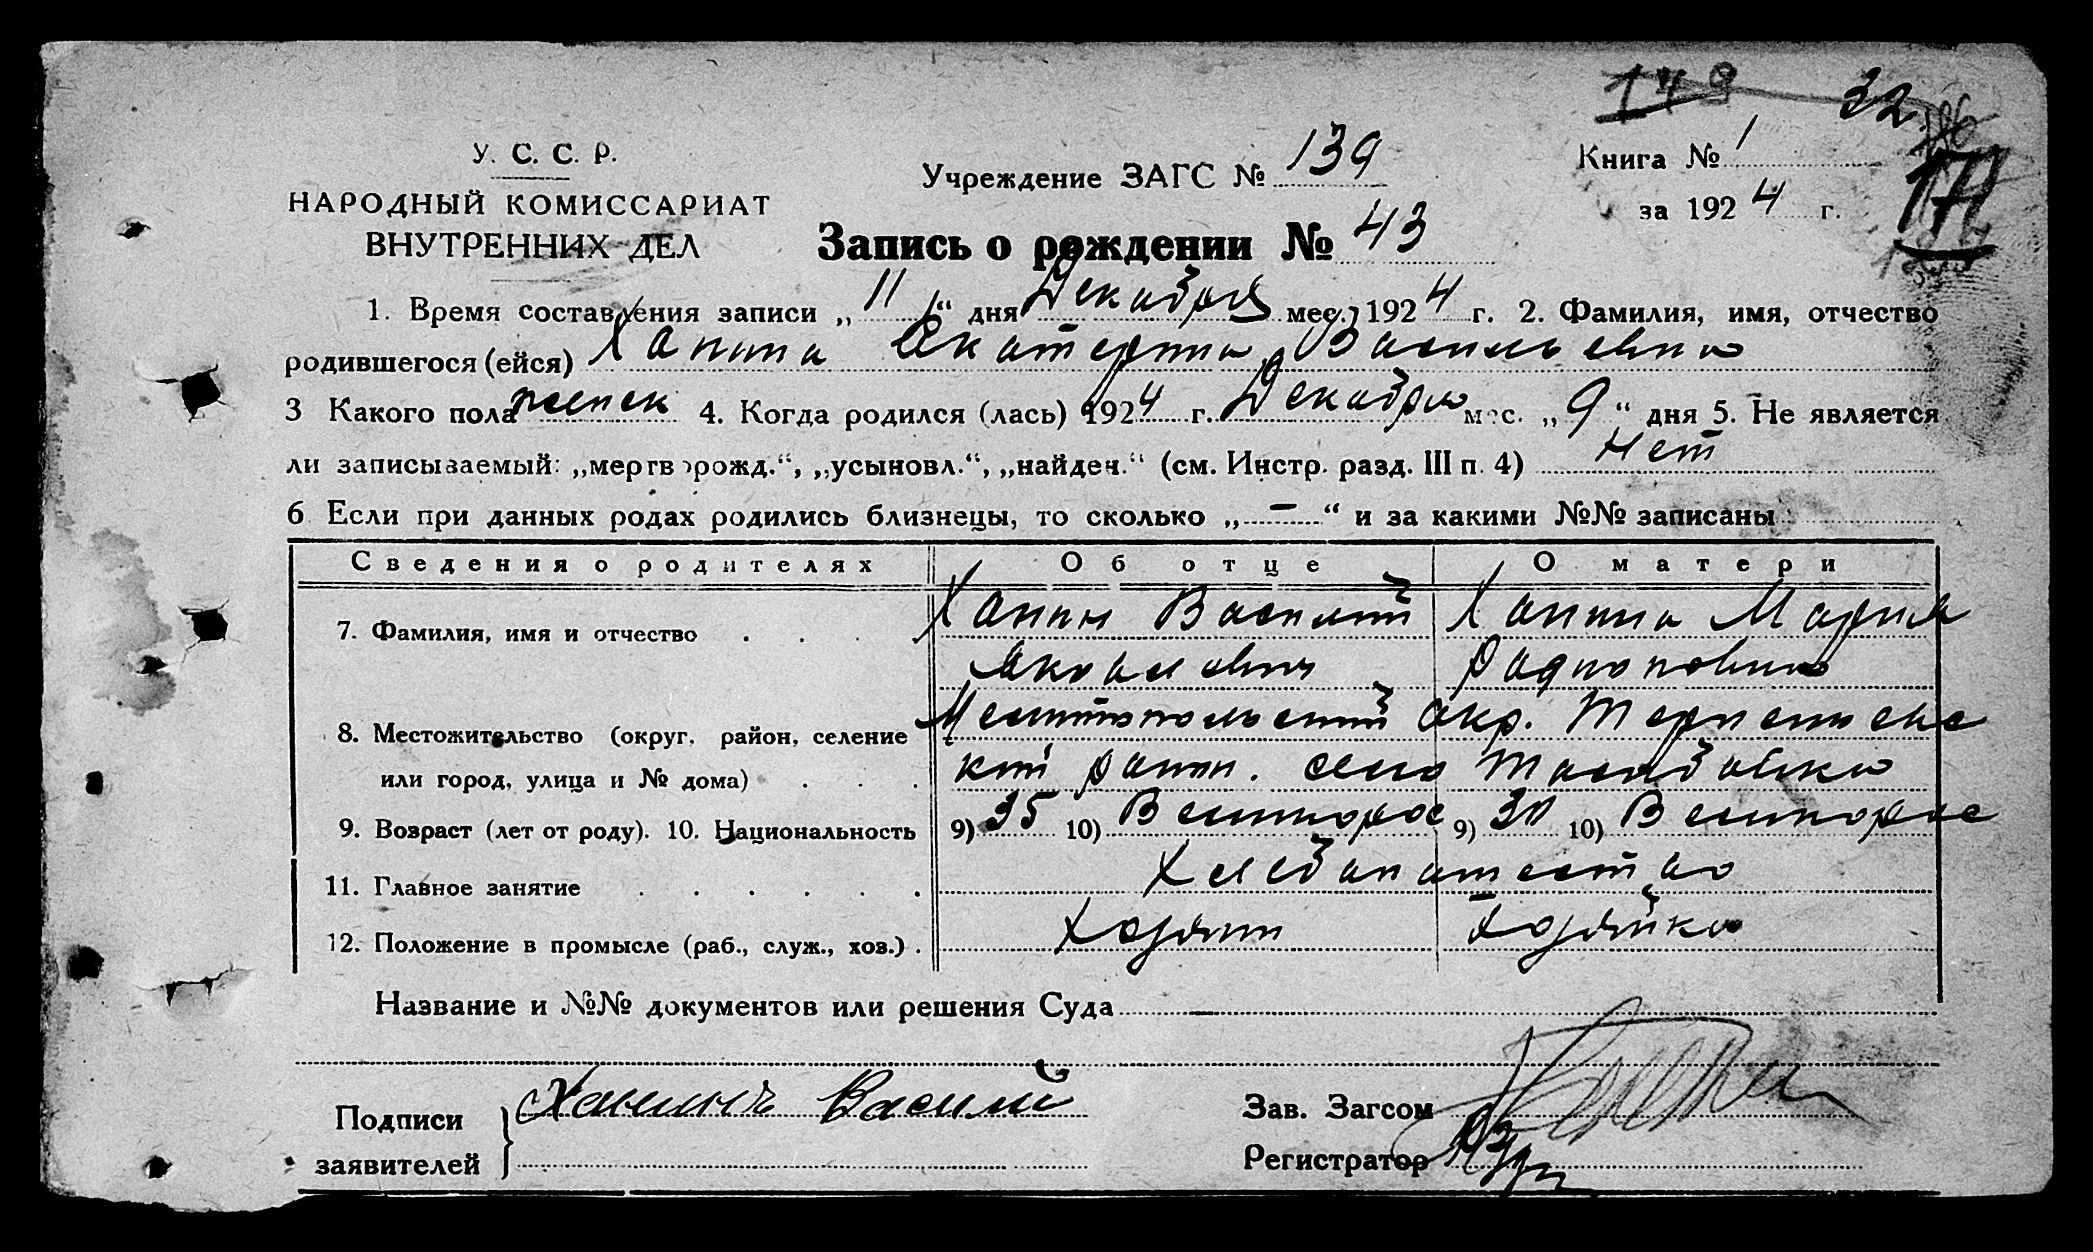 149 32
У. С. С. Р. Учреждение ЗАГС № 139 Книга № 1
НАРОДНЫЙ КОМИССАРИАТ за 1924 г. 171
ВНУТРЕННИХ ДЕЛ Запись о рождении № 43
1. Время составления записи „11“ дня Декабря мес. 1924 г. 2. Фамилия, имя, отчество
родившегося (ейся) Ханина Екатерина Васильевна
3 Какого пола женск 4. Когда родился (лась) 1924 г. Декабря мес. „9“ дня 5. Не является
ли записываемый: „мертворожд.“, „усыновл.“, „найден.“ (см. Инстр. разд. III п. 4) нет
6 Если при данных родах родились близнецы, то сколько „-“ и за какими №№ записаны
Сведения о родителях Об отце О матери
7. Фамилия, имя и отчество Ханин Василий Ханина Мария
Яковлевич Радионовна
8. Местожительство (округ, район, селение Мелитопольский окр. Терпеньевс
или город, улица и № дома) кий район. село Тамбовка
9. Возраст (лет от роду). 10. Национальность 9) 35 10) Великорос 9) 30 10) Великорос
11. Главное занятие Хлебопашество
12. Положение в промысле (раб., служ., хоз.) Хозяин Хозяйка
Название и №№ документов или решения Суда —
Подписи Ханинъ Василий Зав. Загсом
заявителей Регистратор